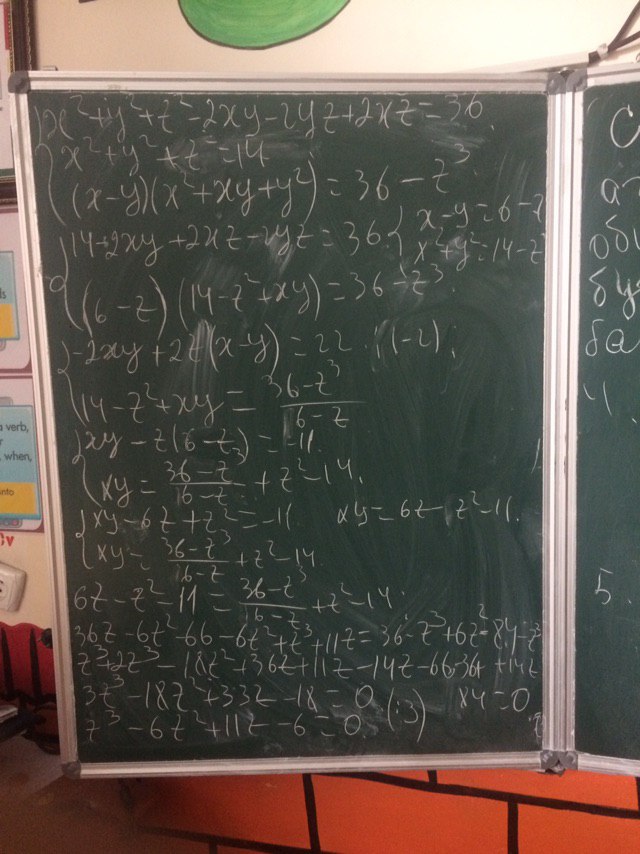 x²+y²+z²-2xy-2yz+2xz=36
x²+y²+z²=14
(x-y)(x²+xy+y²)=36-z³
14-2xy+2xz-2yz=36
x-y=6-z
x²+y²=14-z²
(6-z)(14-z²+xy)=36-z³
-2xy+2z(x-y)=22 |:(-2)
14-z²+xy=(36-z³)/(6-z)
xy-z(6-z)=-11
xy=(36-z³)/(6-z)+z²-14
xy-6z+z²=-11 xy=6z-z²-11
xy=(36-z³)/(6-z)+z²-14
6z-z²-11=(36-z³)/(6-z)+z²-14
36z-6z²-66-6z²+z³+11z=36-z³+6z²-84-z³
z³+2z³-18z²+36z+11z-14z-66-36+
84=0
3z³-18z²+33z-18=0 (:3)
z³-6z²+11z-6=0
4.
5.
a verb,
when,